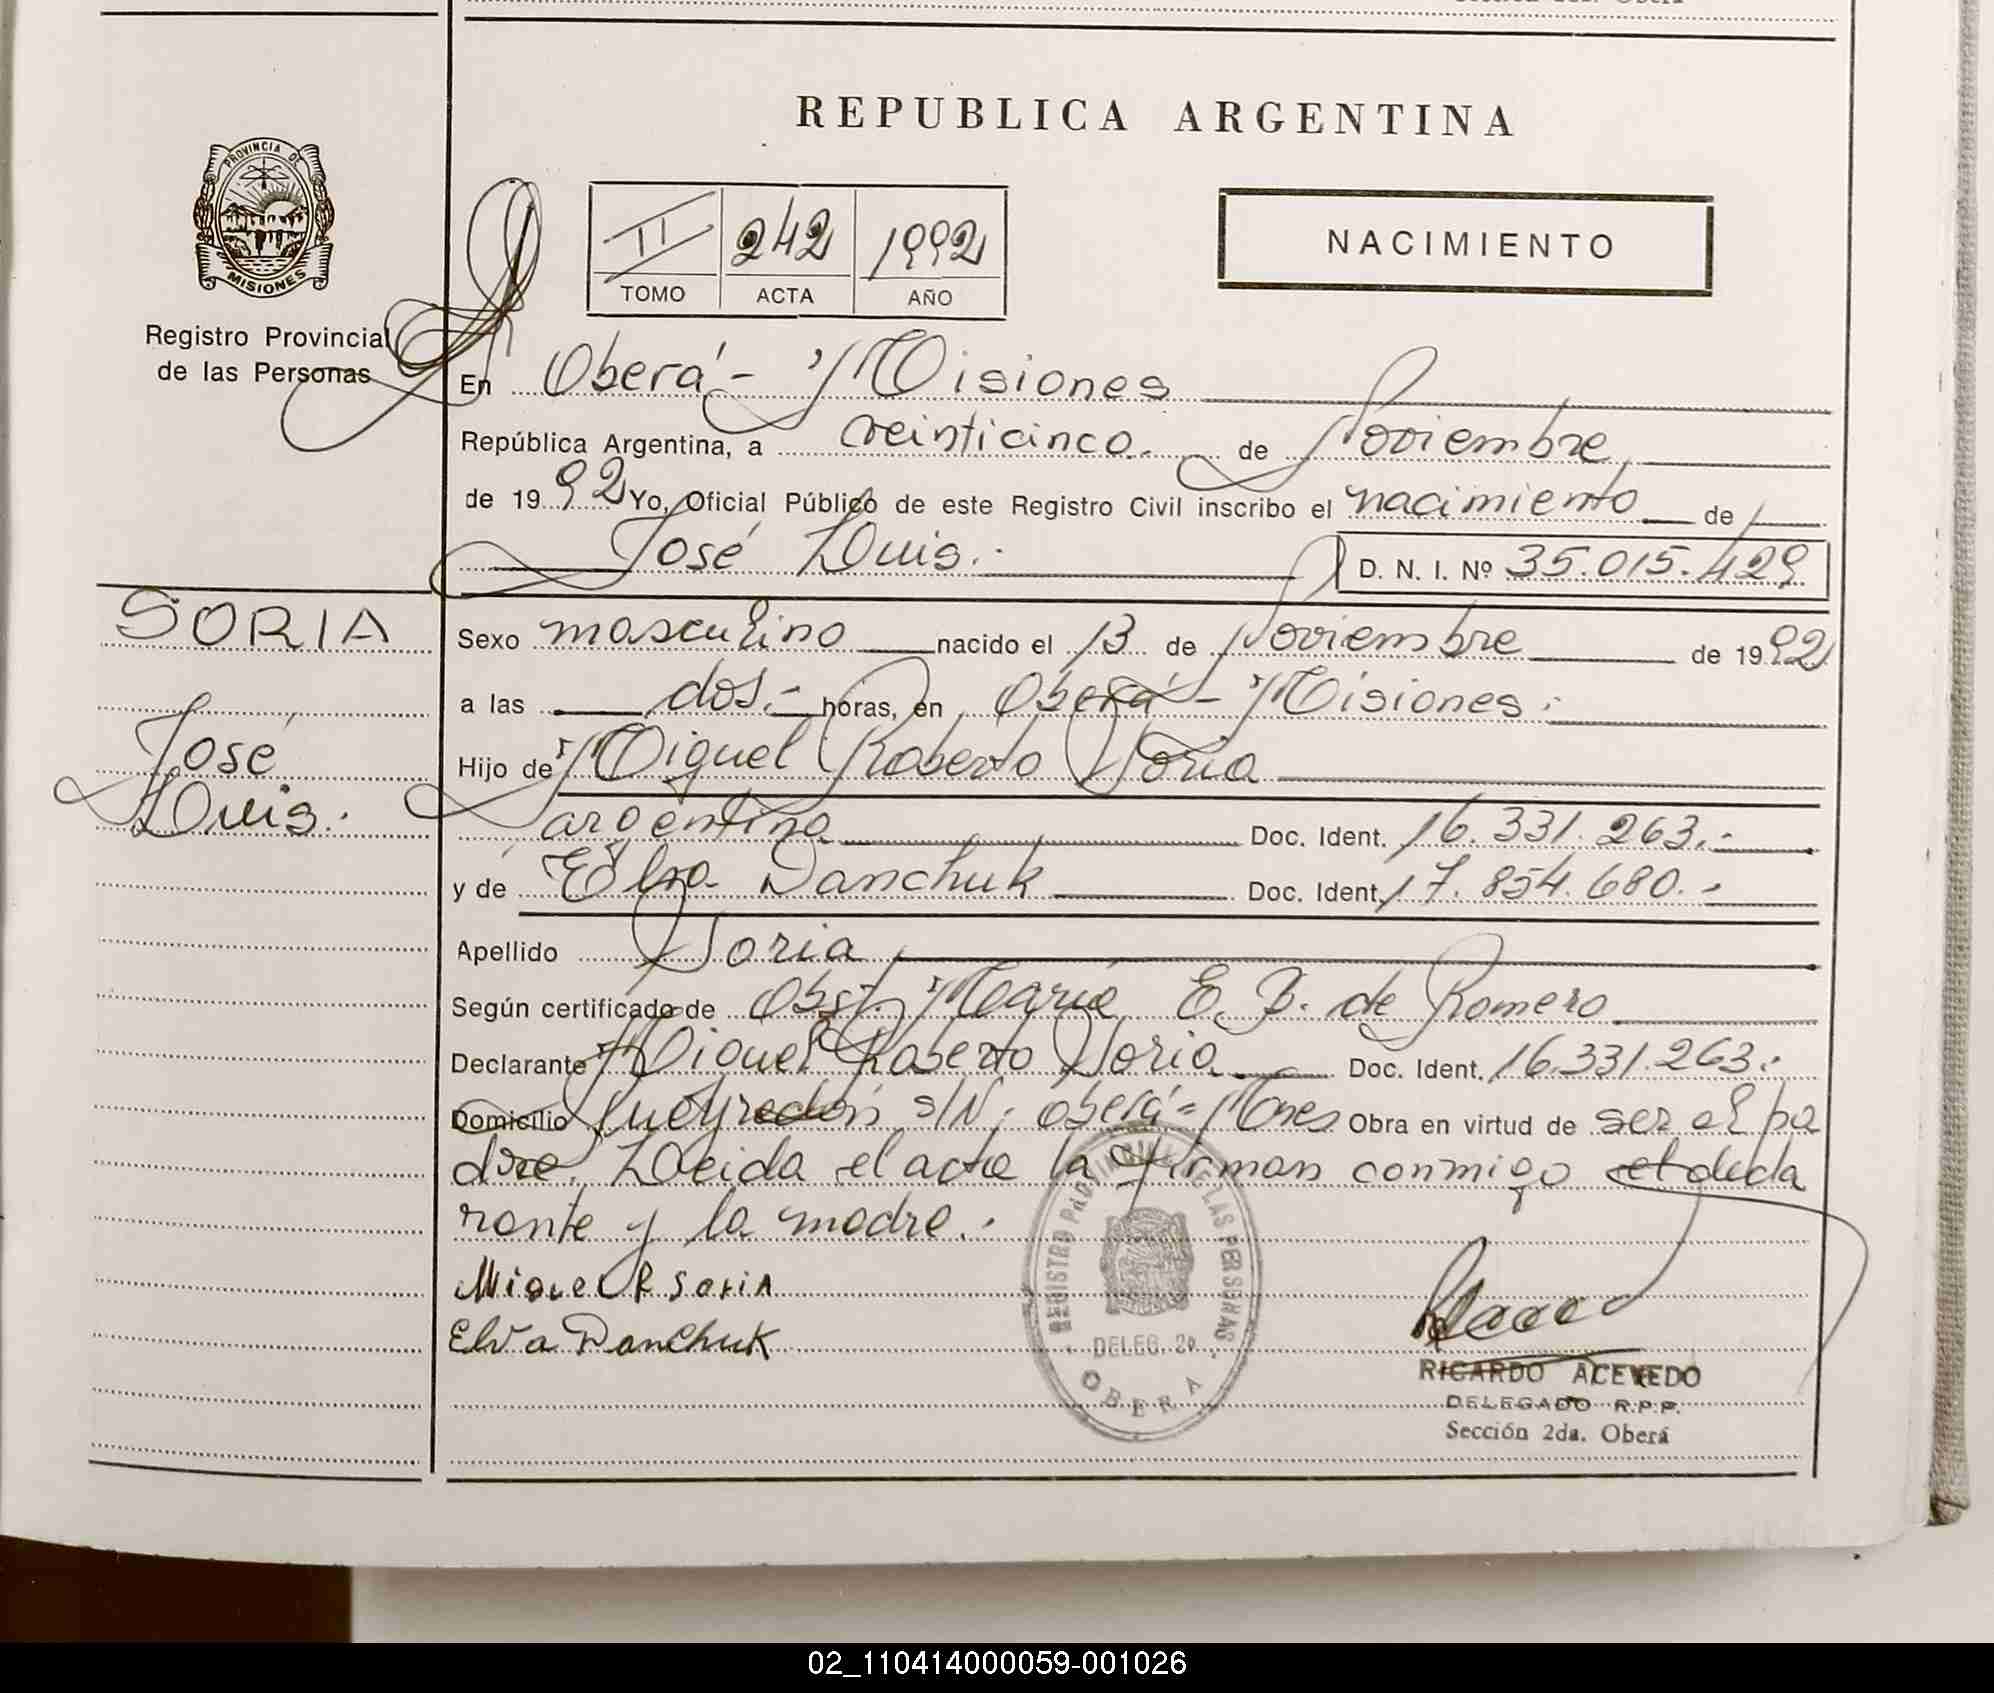 REPUBLICA ARGENTINA
PROVINCIA DE
MISIONES
Registro Provincial
de las Personas
II 242 1992
TOMO ACTA AÑO
NACIMIENTO
En Oberá - Misiones
República Argentina, a veinticinco. de Noviembre
de 1992 Yo, Oficial Público de este Registro Civil inscribo el nacimiento de
José Luis.- D. N. I. Nº 35.015.429
SORIA
José
Luis.-
Sexo masculino nacido el 13 de Noviembre de 1992
a las dos.- horas, en Oberá - Misiones.-
Hijo de Miguel Roberto Soria
argentino Doc. Ident. 16.331.263.-
y de Elva Danchuk Doc. Ident. 17.854.680.-
Apellido Soria
Según certificado de Obst. María E. B. de Romero
Declarante Miguel Roberto Soria Doc. Ident. 16.331.263.-
Domicilio Pueyrredón s/N.- Oberá - Mnes Obra en virtud de ser el pa
dre. Leida el acta la firman conmigo el decla
rante y la madre.-
Miguel R Soria
Elva Danchuk
REGISTRO PROVINCIAL DE LAS PERSONAS
DELEG. 2a
OBERA
RICARDO ACEVEDO
DELEGADO R.P.P.
Sección 2da. Oberá
02_110414000059-001026